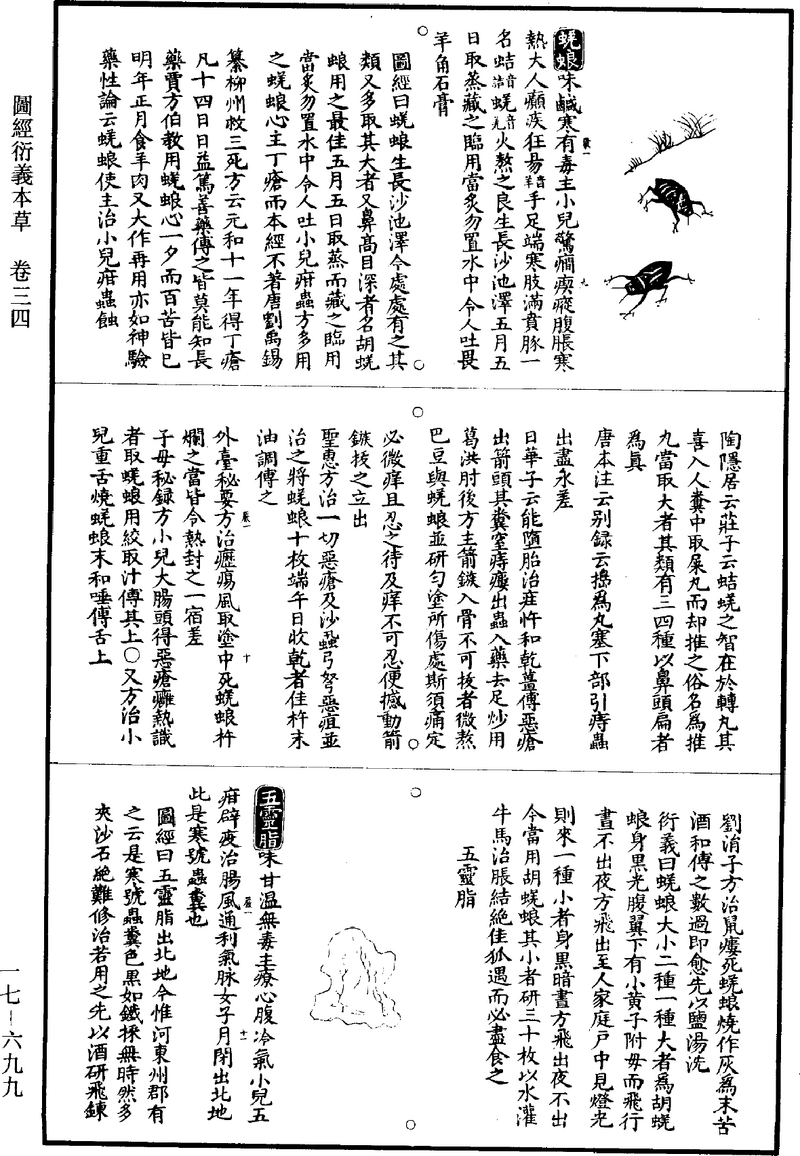 圖經衍義本草　卷三四
一七－六九九
蜣蜋味鹹寒有毒主小兒驚癎瘈瘲腹脹寒
熱大人癲疾狂昜音羊手足端寒肢滿賁豚一
名蛣音詰蜣音羌火熬之良生長沙池澤五月五
日取蒸藏之臨用當炙勿置水中令人吐畏
羊角石膏
圖經曰蜣蜋生長沙池澤今處處有之其
類又多取其大者又鼻高目深者名胡蜣
蜋用之最佳五月五日取蒸而藏之臨用
當炙勿置水中令人吐小兒疳蟲方多用
之蜣蜋心主丁瘡而本經不著唐劉禹錫
纂柳州救三死方云元和十一年得丁瘡
凡十四日日益篤善藥傅之皆莫能知長
藥賈方伯教用蜣蜋心一夕而百苦皆已
明年正月食羊肉又大作再用亦如神驗
藥性論云蜣蜋使主治小兒疳蟲蝕
陶隱居云莊子云蛣蜣之智在於轉丸其
喜入人糞中取屎丸而却推之俗名爲推
丸當取大者其類有三四種以鼻頭扁者
爲真
唐本注云别錄云搗爲丸塞下部引痔蟲
出盡永差
日華子云能墮胎治疰忤和乾薑傅惡瘡
出箭頭其糞窒痔瘻出蟲入藥去足炒用
葛洪肘後方主箭鏃入骨不可拔者微熬
巴豆與蜣蜋並研匀塗所傷處斯須痛定
必微痒且忍之待及痒不可忍便撼動箭
鏃拔之立出
聖惠方治一切惡瘡及沙蝨弓弩惡疽並
治之將蜣蜋十枚端午日收乾者佳杵末
油調傅之
外臺秘要方治癧瘍風取塗中死蜣蜋杵
爛之當皆令熱封之一宿差
子母秘録方小兒大腸頭得惡瘡癰熱識
者取蜣蜋用絞取汁傅其上○又方治小
兒重舌燒蜣蜋末和唾傅舌上
劉涓子方治鼠瘻死蜣蜋燒作灰爲末苦
酒和傅之數過即愈先以鹽湯洗
衍義曰蜣蜋大小二種一種大者爲胡蜣
蜋身黑光腹翼下有小黃子附母而飛行
晝不出夜方飛出至人家庭戸中見燈光
則來一種小者身黑暗晝方飛出夜不出
今當用胡蜣蜋其小者研三十枚以水灌
牛馬治脹結絶佳狐遇而必盡食之
五靈脂
五靈脂味甘溫無毒主療心腹冷氣小兒五
疳辟疫治腸風通利氣脉女子月閉出北地
此是寒號蟲糞也
圖經曰五靈脂出北地今惟河東州郡有
之云是寒號蟲糞色黑如鐵採無時然多
夾沙石絶難修治若用之先以酒研飛鍊